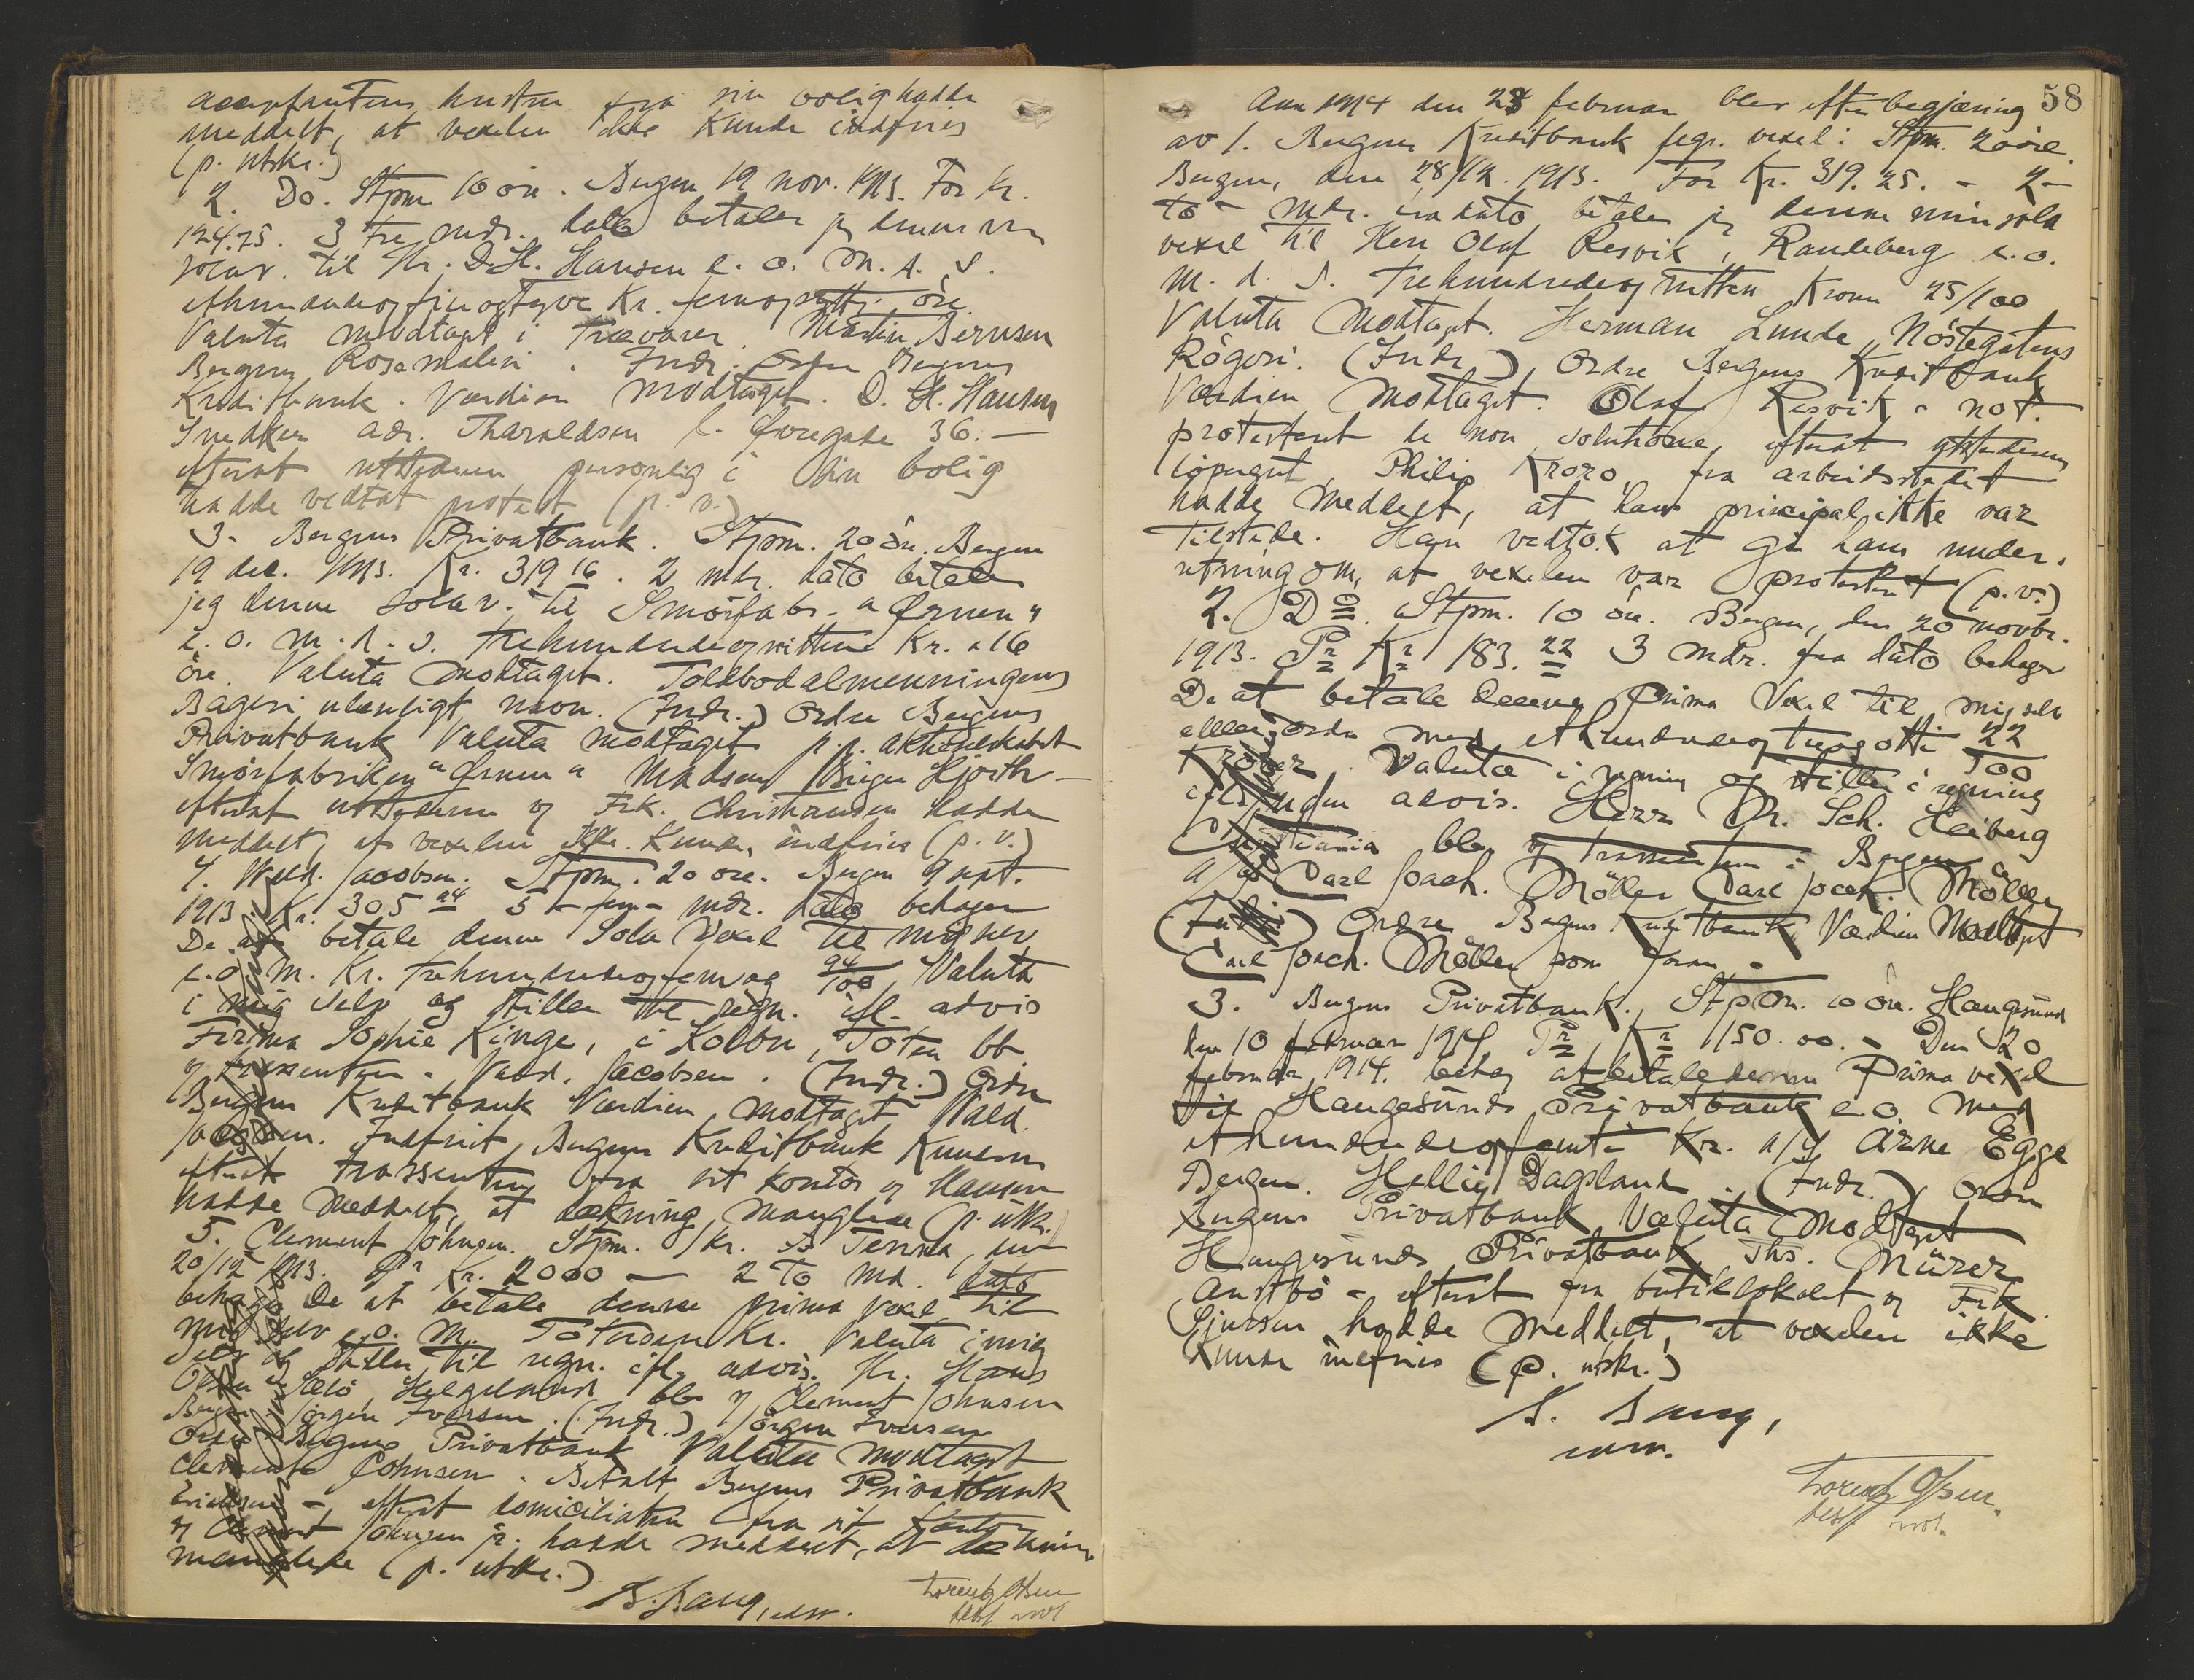 acceptantens hustru fra sin bolig hadde
meddelt, at vexelen ikke kunde indfries
(p. utskr.)
2. Do. Stpm 10 øre. Bergen 19 nov. 1913. For Kr.
124.75. 3 tre mdr. dato betaler jeg denne min
solav. til Hr. D. H. Hansen e. o. M. d. S.
ethundredeogfireogtyve Kr. femogsytti øre.
Valuta modtaget i trævarer. Martin Berntsen
Bergens Rosemaleri. Indr. Ordre Bergens
Kreditbank. Værdien modtaget. D. H. Hansen
Snedker adr. Tharaldsen l. Øvregade 36. —
efterat utstederen personlig i sin bolig
hadde vedtat protest (p. v.)
3. Bergens Privatbank. Stpm. 20 öre. Bergen
19 dec. 1913. Kr. 319 16. 2 mdr. dato betaler
jeg denne solav. til Smörfabr. "Ørnen"
e. o. m. d. s. trehundredeognitten Kr. 16
öre. Valuta modtaget. Toldbodalmenningens
Bageri ulæseligt navn. (Indr.) Ordre Bergens
Privatbank Valuta modtaget p.p. aktieselskabet
Smörfabriken "Ørnen" Madsen Birger Hjorth —
efterat utstederen v Frk. Christiansen hadde
meddelt, at vexelen ikke kunde indfries (p. v.)
4. Wald. Jacobsen. Stpm. 20 öre. Bergen 9 sept.
1913 Kr. 305 94 5 - fem - mdr. dato behager
De at betale denne Sola Vexel til mig selv
e. o. M. Kr. trehundredeogfemog 94/100 Valuta
i mig selv og stilles til regn. ifl. advis
Firma Sophie Kinge, i Kolbu, Toten bb
v trassenten. Wald. Jacobsen. (Indr.) Ordre
Bergens Kreditbank Værdien modtaget Wald.
Jacobsen. Indfriet, Bergens Kreditbank
efterat trassenten fra sit kontor v Hansen
hadde meddelt, at dækning manglede (p. utskr.)
5. Clement Johnsen. Stpm. 1 kr. Tenna, den
20/12 1913. Pr Kr. 2000 — 2 to md. dato
behager De at betale denne prima vexel til
mig selv e. o. M. Totusen Kr. Valuta i mig
selv og stilles til regn. ifl. advis. Hr. Hans
Olsen Helgeland bb v Clement Johnsen
Bergen Jörgen Iversen. (Indr.) Jörgen Iversen
Ordre Bergens Privatbank Valuta modtaget
Clement Johnsen. Betalt Bergens Privatbank
Erichsen —, efterat domiciliaten fra sit kontor
v Clement Johnsen jr. hadde meddelt, at dækning
manglede (p. utskr.)
Lorentz Olsen
best. not.
58
Aar 1914 den 28 februar blev efter begjæring
av 1. Bergens Kreditbank fegr. vexel: Stpm. 20 öre.
Bergen, den 28/12. 1913. For Kr. 319. 25. - 2 -
to - mdr. fra dato betaler jeg denne min sola
vexel til Herr Olaf Resvik, Randeberg e. o.
M. d. S. Trehundredeognitten Kroner 25/100
Valuta Modtaget. Herman Lunde, Nöstegatens
Rögeri. (Indr.) Ordre Bergens Kreditbank
Værdien Modtaget. Olaf Resvik - not.
protestert de non solutione, efterat utstederens
löpegut, Philip Kroro, fra arbeidsstedet
hadde meddelt, at hans principal ikke var
tilstede. Han vedtok at gi ham under-
retning om, at vexelen var protestert (p. v.)
2. Do. Stpm. 10 öre. Bergen, den 20 novbr.
1913. Pr Kr 183. 22 3 mdr. fra dato behager
De at betale denne Prima Vexel til mig selv
eller ordre med ethundredeogtreogotti 22/100
Kroner. Valuta i regning og stilles i regning
ifølge uden advis. Herr Dr. Sch. Heiberg
Christiania bb v trassenten i Bergen
Carl Joach. Möller Carl Joach. Möller
(Indr.) Ordre Bergens Kreditbank Værdien Modtaget
Carl Joach. Möller som foran -
3. Bergens Privatbank. Stpm. 10 öre. Haugesund
den 10 februar 1914, Pr Kr 150. 00. - Den 20
februar 1914. behag at betale denne Prima vexel
til Haugesunds Privatbank e. o. med
ethundredeogfemti Kr. Arne Egge
Bergen. Hellig Dagsland. (Indr.) Ordre
Bergens Privatbank Valuta Modtaget
Haugesunds Privatbank Ths. Mürer
Austbö - efterat fra butiklokalet v Frk.
Gjersen hadde meddelt, at vexelen ikke
kunde indfries (p. utskr.)
Lorentz Olsen.
best. not.